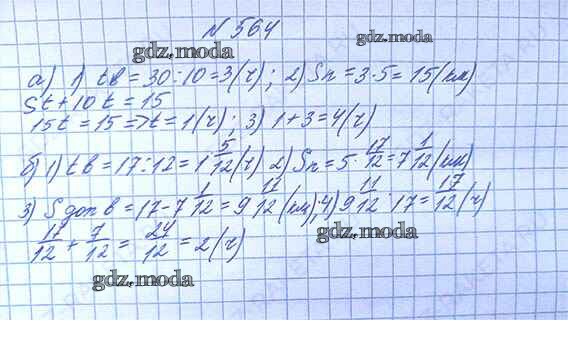 N 564
gdz.moda
gdz.moda
а) 1) tв = 30 : 10 = 3 (ч); 2) Sп = 3 · 5 = 15 (км)
5t + 10t = 15
15t = 15 => t = 1 (ч); 3) 1 + 3 = 4 (ч)
б) 1) tв = 17 : 12 = 1 5/12 (ч) 2) Sп = 5 · 17/12 = 7 1/12 (км)
3) S доп в = 17 - 7 1/12 = 9 11/12 (км); 4) 9 11/12 : 17 = 17/12 (ч)
17/12 + 7/12 = 24/12 = 2 (ч)
gdz.moda
gdz.moda
gdz.moda